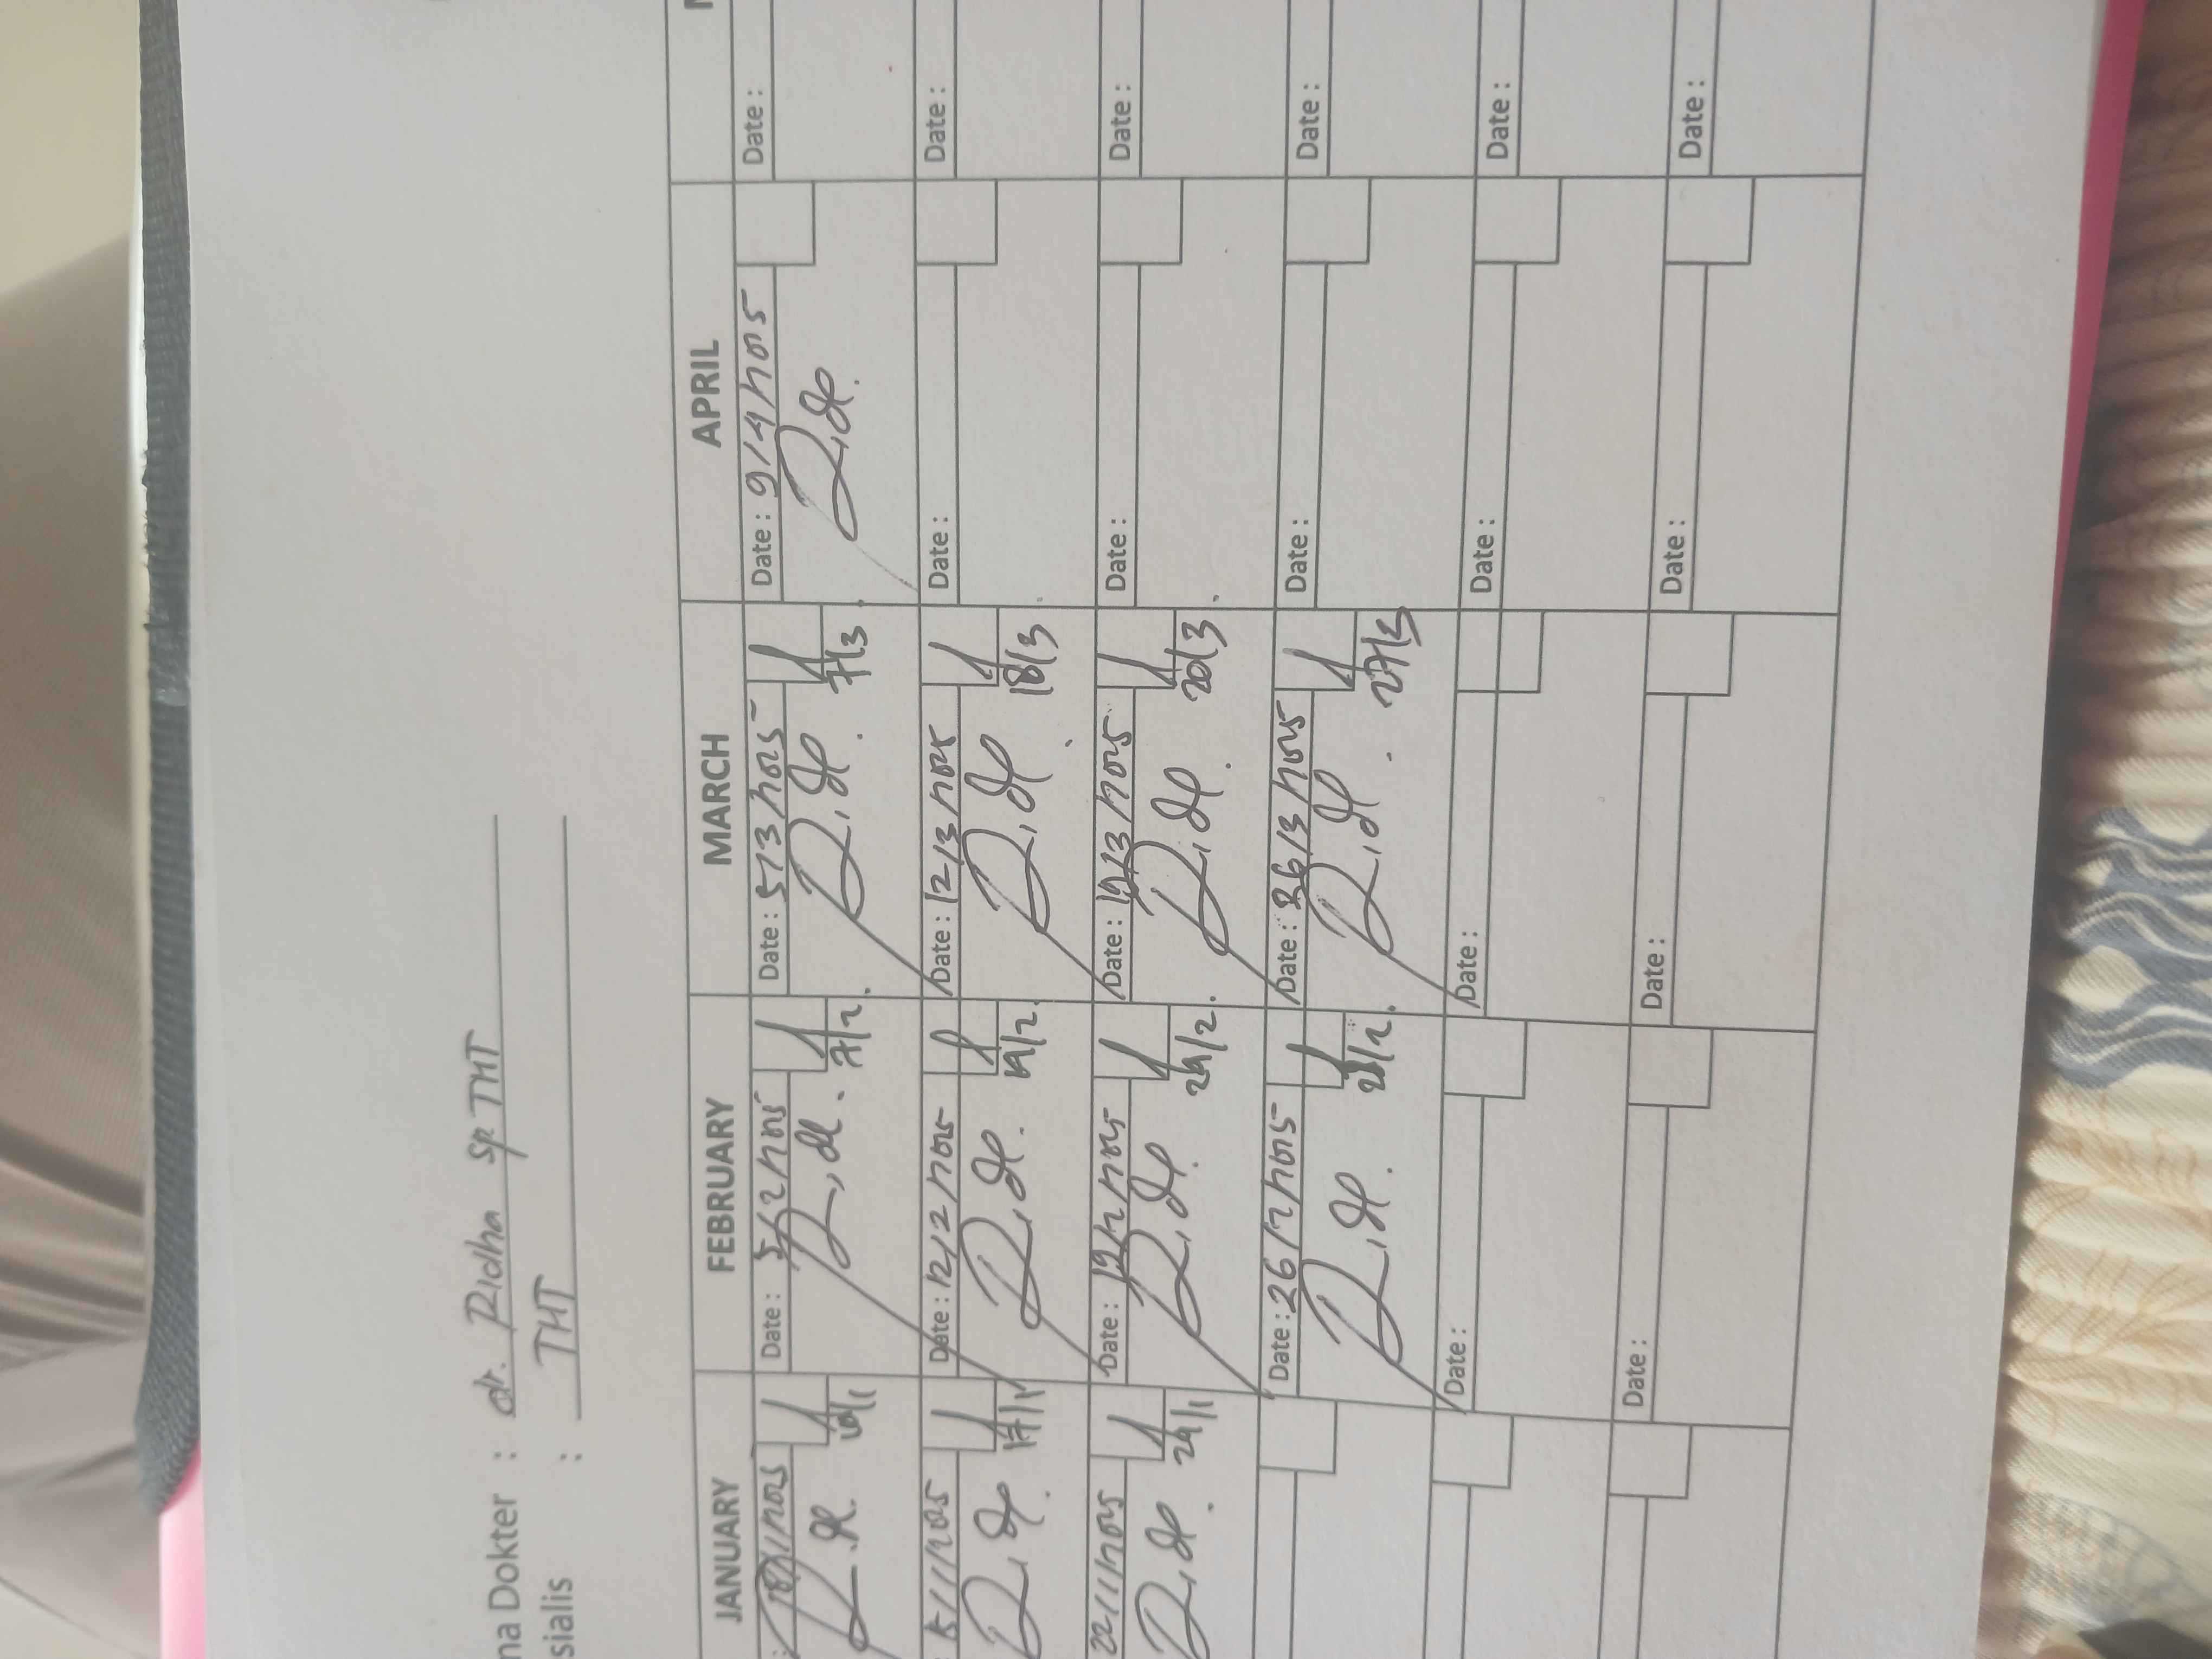 na Dokter : dr. Ridha Sp THT
sialis : THT
JANUARY FEBRUARY MARCH APRIL
Date : 5/2/2025 Date : 5/3/2025 Date : 9/4/2025 Date :
7/2. 7/3
Date : 12/2/2025 Date : 12/3/2025 Date : Date :
17/1 18/3
Date : 19/2/2025 Date : 19/3/2025 Date : Date :
22/1/2025
24/1 24/2. 20/3
Date : 26/2/2025 Date : 26/3/2025 Date : Date :
27/3
Date : Date : Date : Date :
Date : Date : Date : Date :